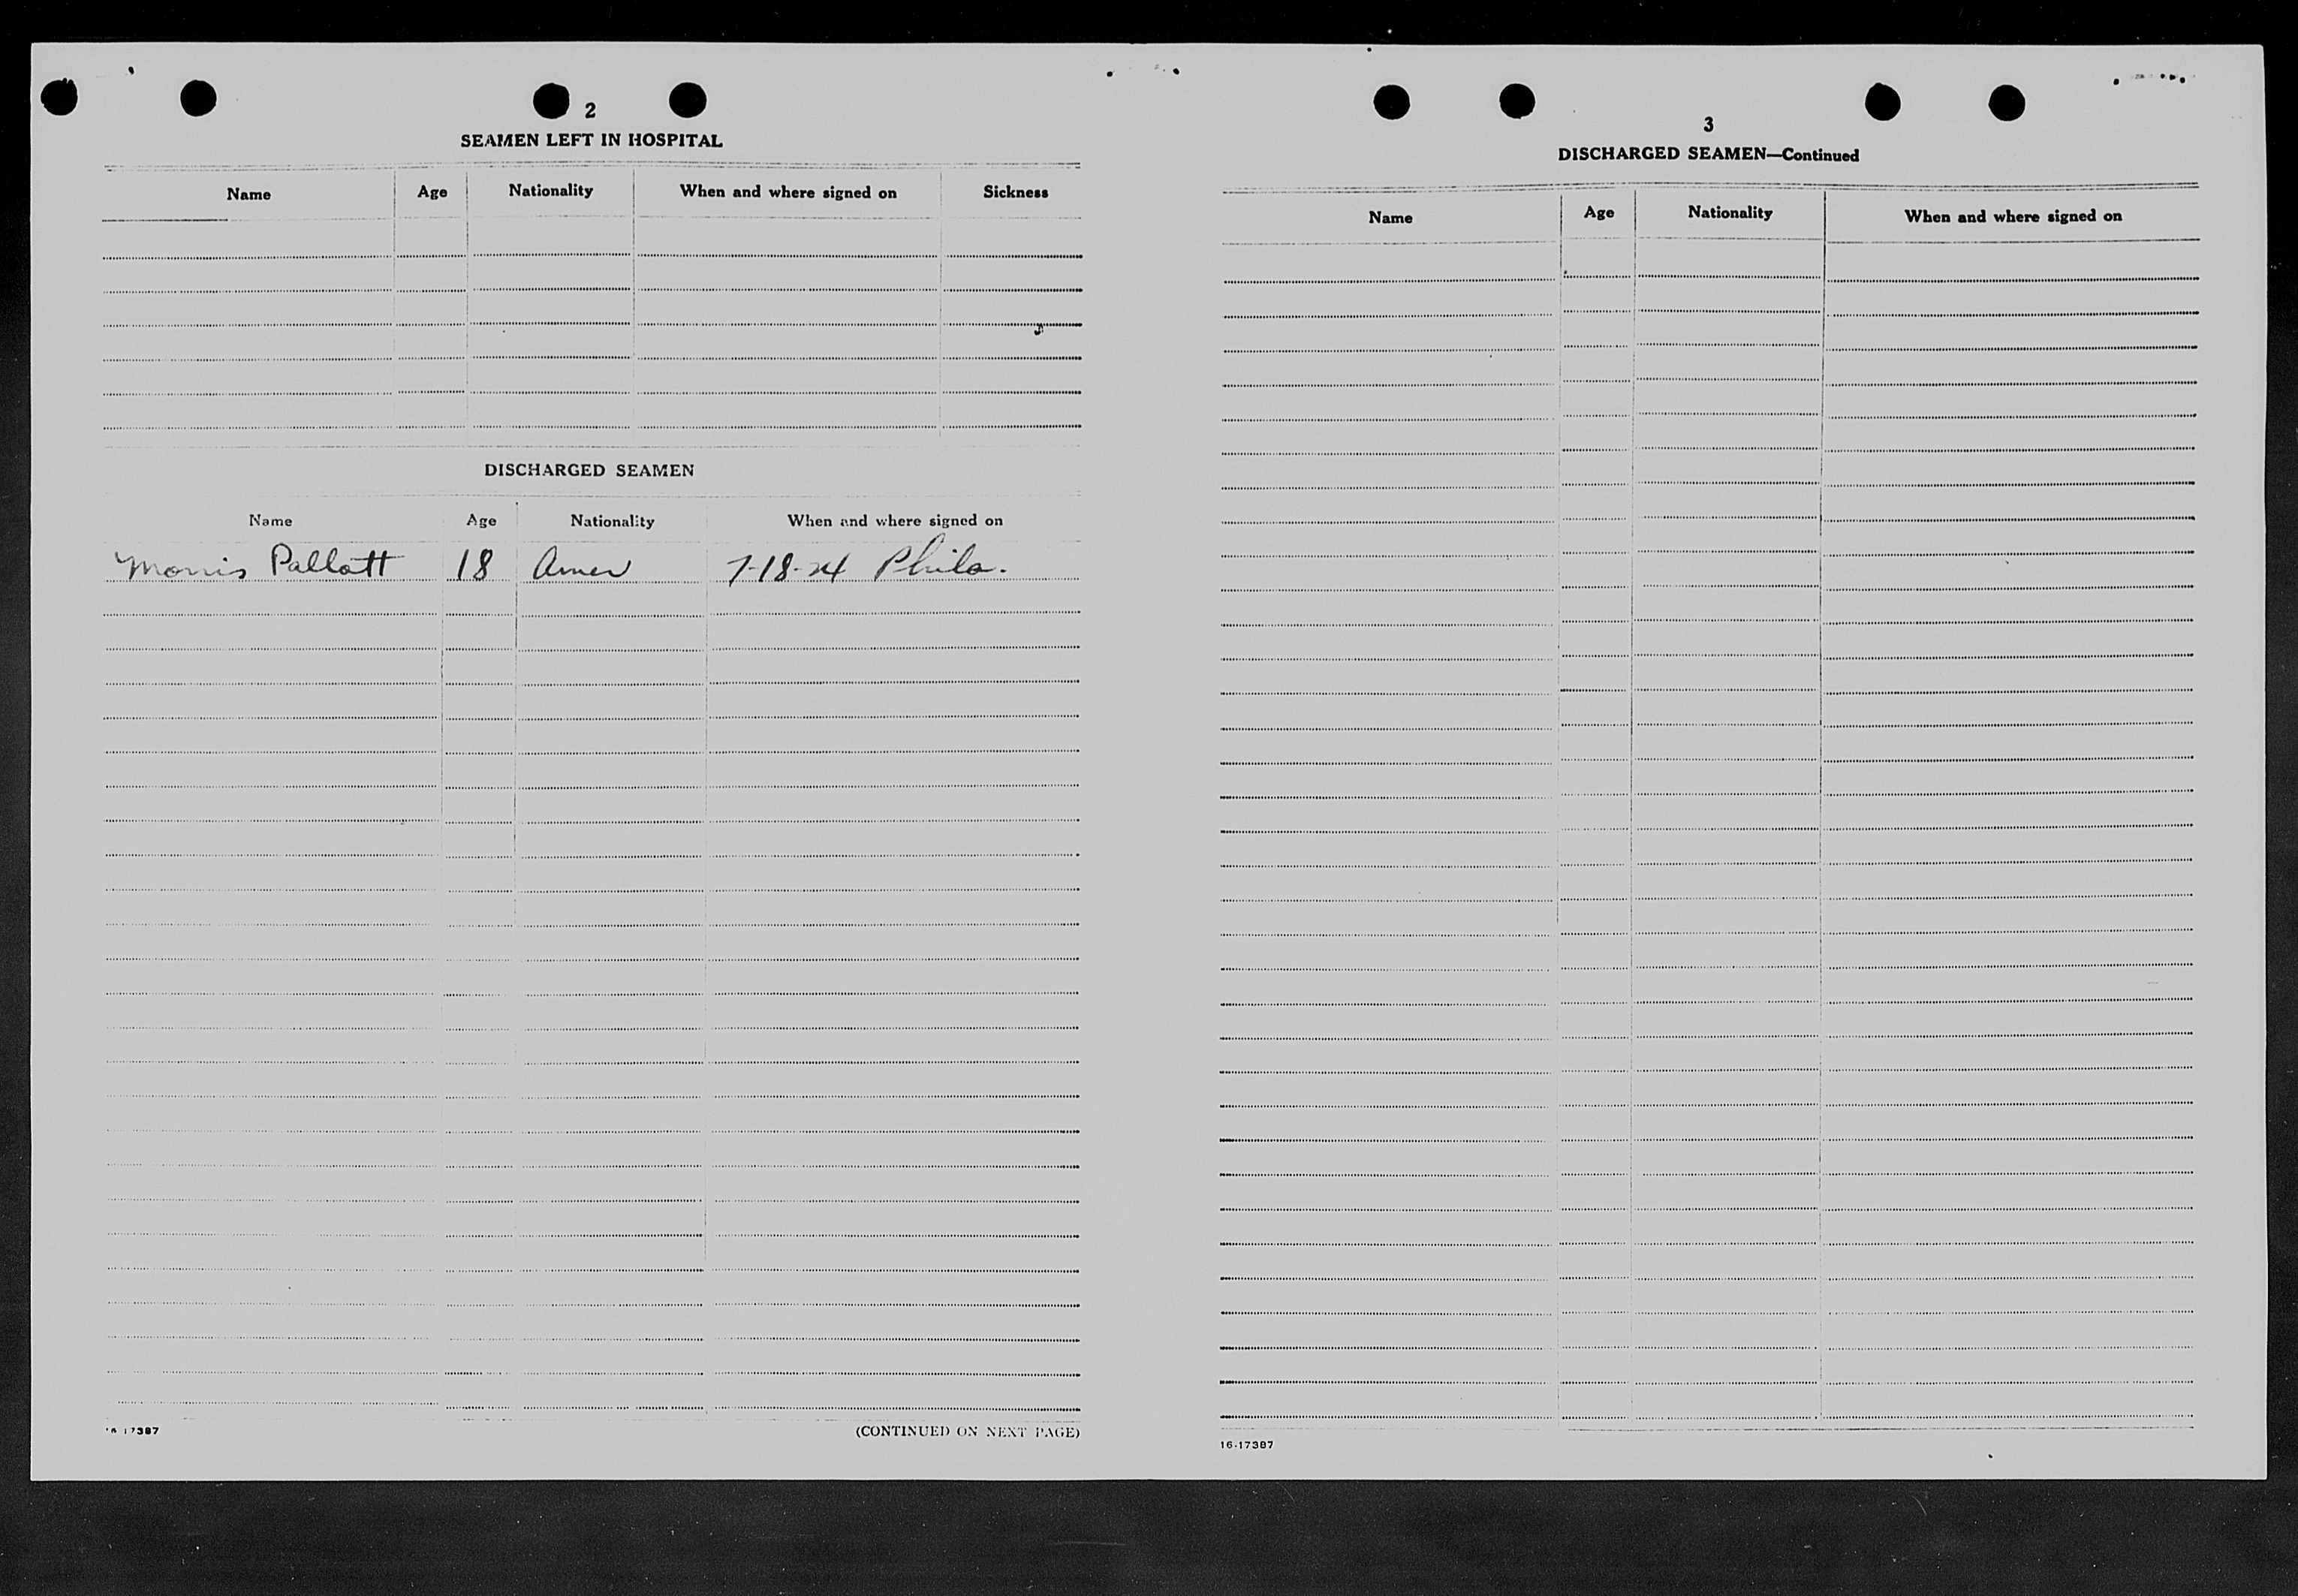 2
SEAMEN LEFT IN HOSPITAL
Name Age Nationality When and where signed on Sickness
DISCHARGED SEAMEN
Name Age Nationality When and where signed on
Morris Pallatt 18 Amer 7-18-24 Phila.
16-17387 (CONTINUED ON NEXT PAGE)
3
DISCHARGED SEAMEN—Continued
Name Age Nationality When and where signed on
16-17387